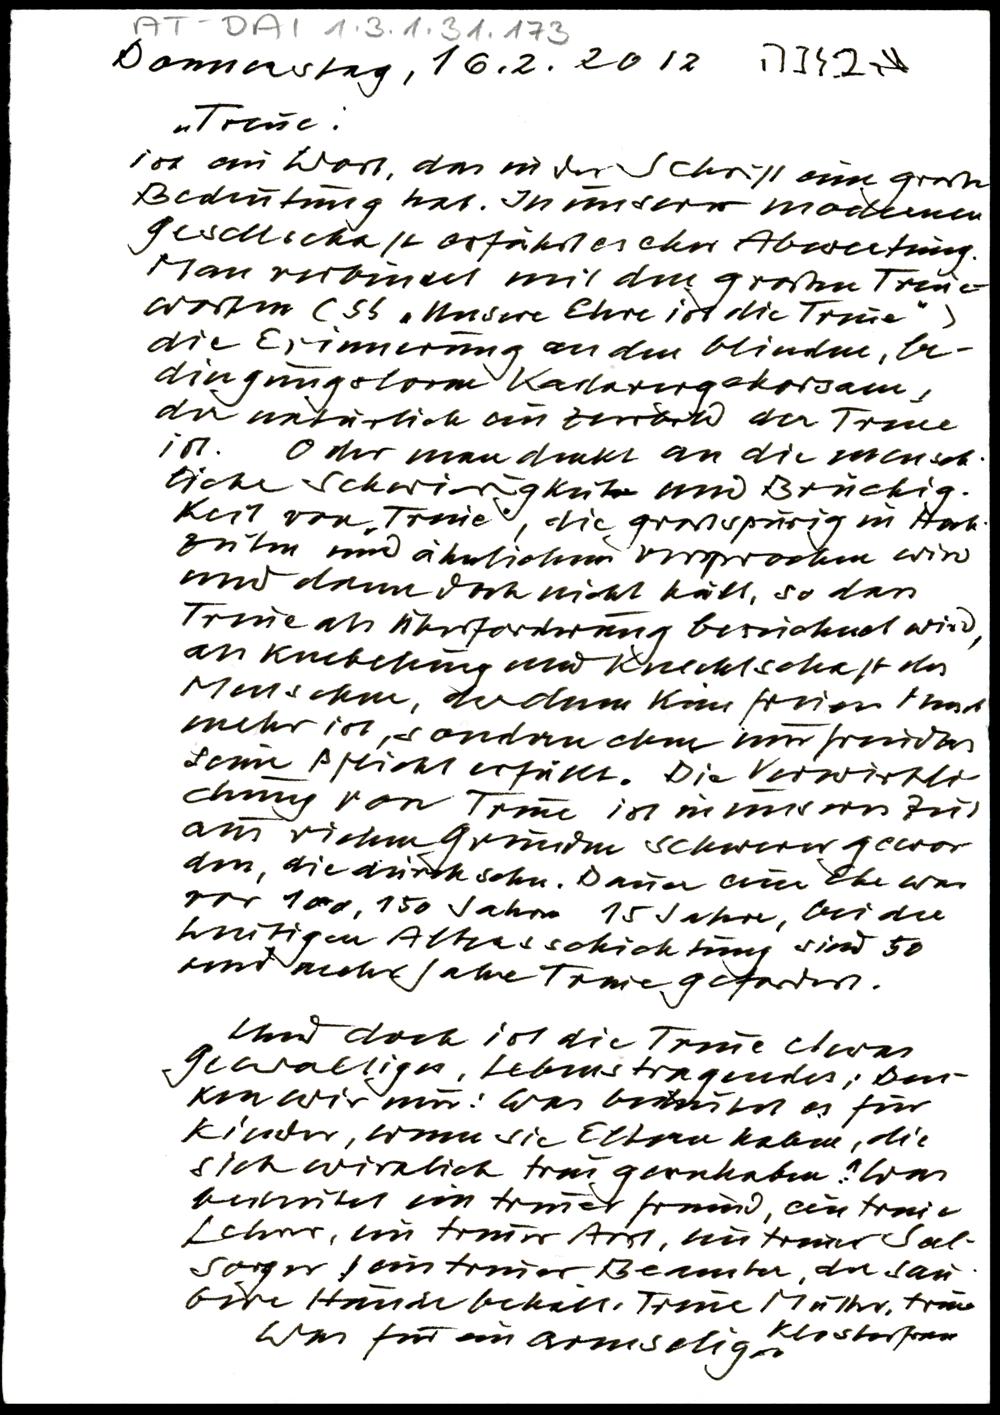 AT-DAI 1.3.1.31.173
Donnerstag, 16.2.2012
„Treue:
ist ein Wort, das in der Schrift eine große
Bedeutung hat. In unserer modernen
Gesellschaft erfährt es eher Abwertung.
Man verbindet mit den großen Treue-
worten (SS „Unsere Ehre ist die Treue")
die Erinnerung an den blinden, be-
dingungslosen Kadavergehorsam,
der natürlich ein Zerrbild der Treue
ist. Oder man denkt an die mensch-
liche Schwierigkeit und Brüchig-
keit von „Treue", die großspurig in Hoch-
zeiten und ähnlichem versprochen wird
und dann doch nicht hält, so dass
Treue als Überforderung bezeichnet wird,
als Knebelung und Knechtschaft des
Menschen, der dann kein freier Mensch
mehr ist, sondern eben nur freudlos
seine Pflicht erfüllt. Die Verwirkli-
chung von Treue ist in unserer Zeit
aus vielen Gründen schwerer gewor
den, die durchschn. Dauer einer Ehe war
vor 100, 150 Jahren 15 Jahre, bei der
heutigen Altersschichtung sind 50
und mehr Jahre Treue gefordert.
Und doch ist die Treue etwas
Gewaltiges, Lebenstragendes; Den-
ken wir nur: Was bedeutet es für
Kinder, wenn sie Eltern haben, die
sich wirklich treu gernhaben! Was
bedeutet ein treuer Freund, ein treuer
Lehrer, ein treuer Arzt, ein treuer Seel-
sorger, ein treuer Beamter, der sau-
bere Hände behält. Treue Mutter, treue
Klosterfrau
Was für ein armseliger